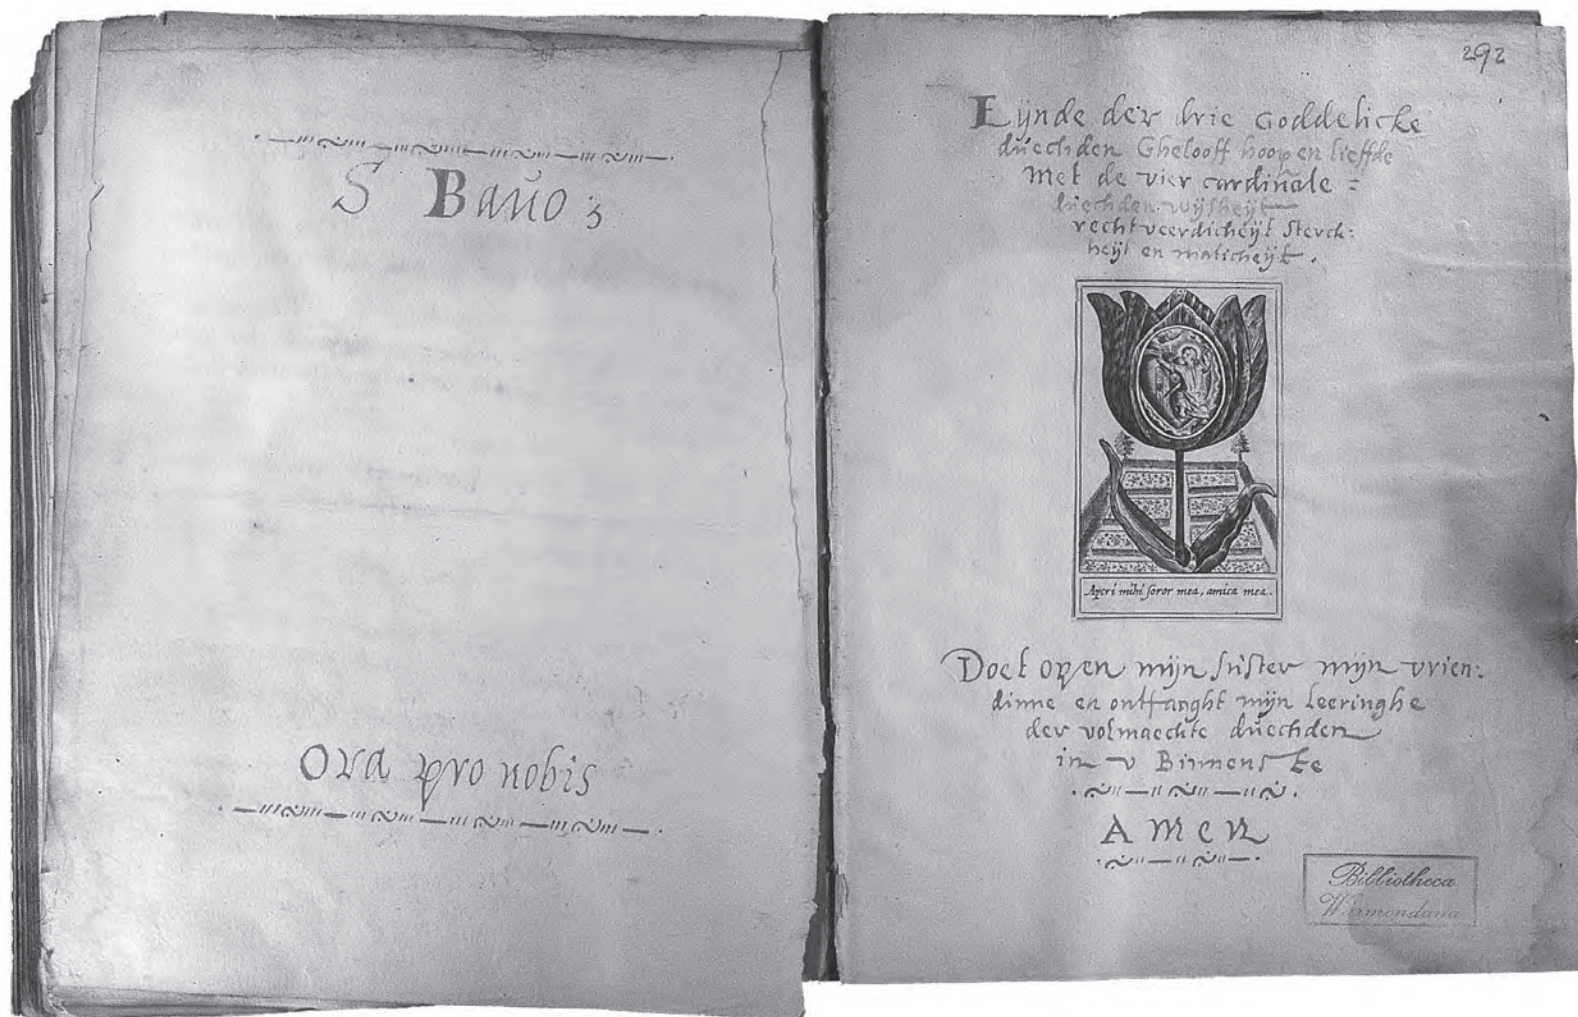 S Baŭo
Ora pro nobis
292
Eijnde der drie Goddelicke
dŭechden Ghelooff hoop en lieffde
Met de vier cardinale =
dŭechden wijsheijt
rechtveerdicheijt sterck:
heijt en maticheijt.
Aperi mihi soror mea, amica mea.
Doet open mijn sŭster mijn vrien:
dinne en ontfanght mijn leeringhe
der volmaeckte dŭechden
in v Binnenste
AMen
Bibliotheca
Warmondana